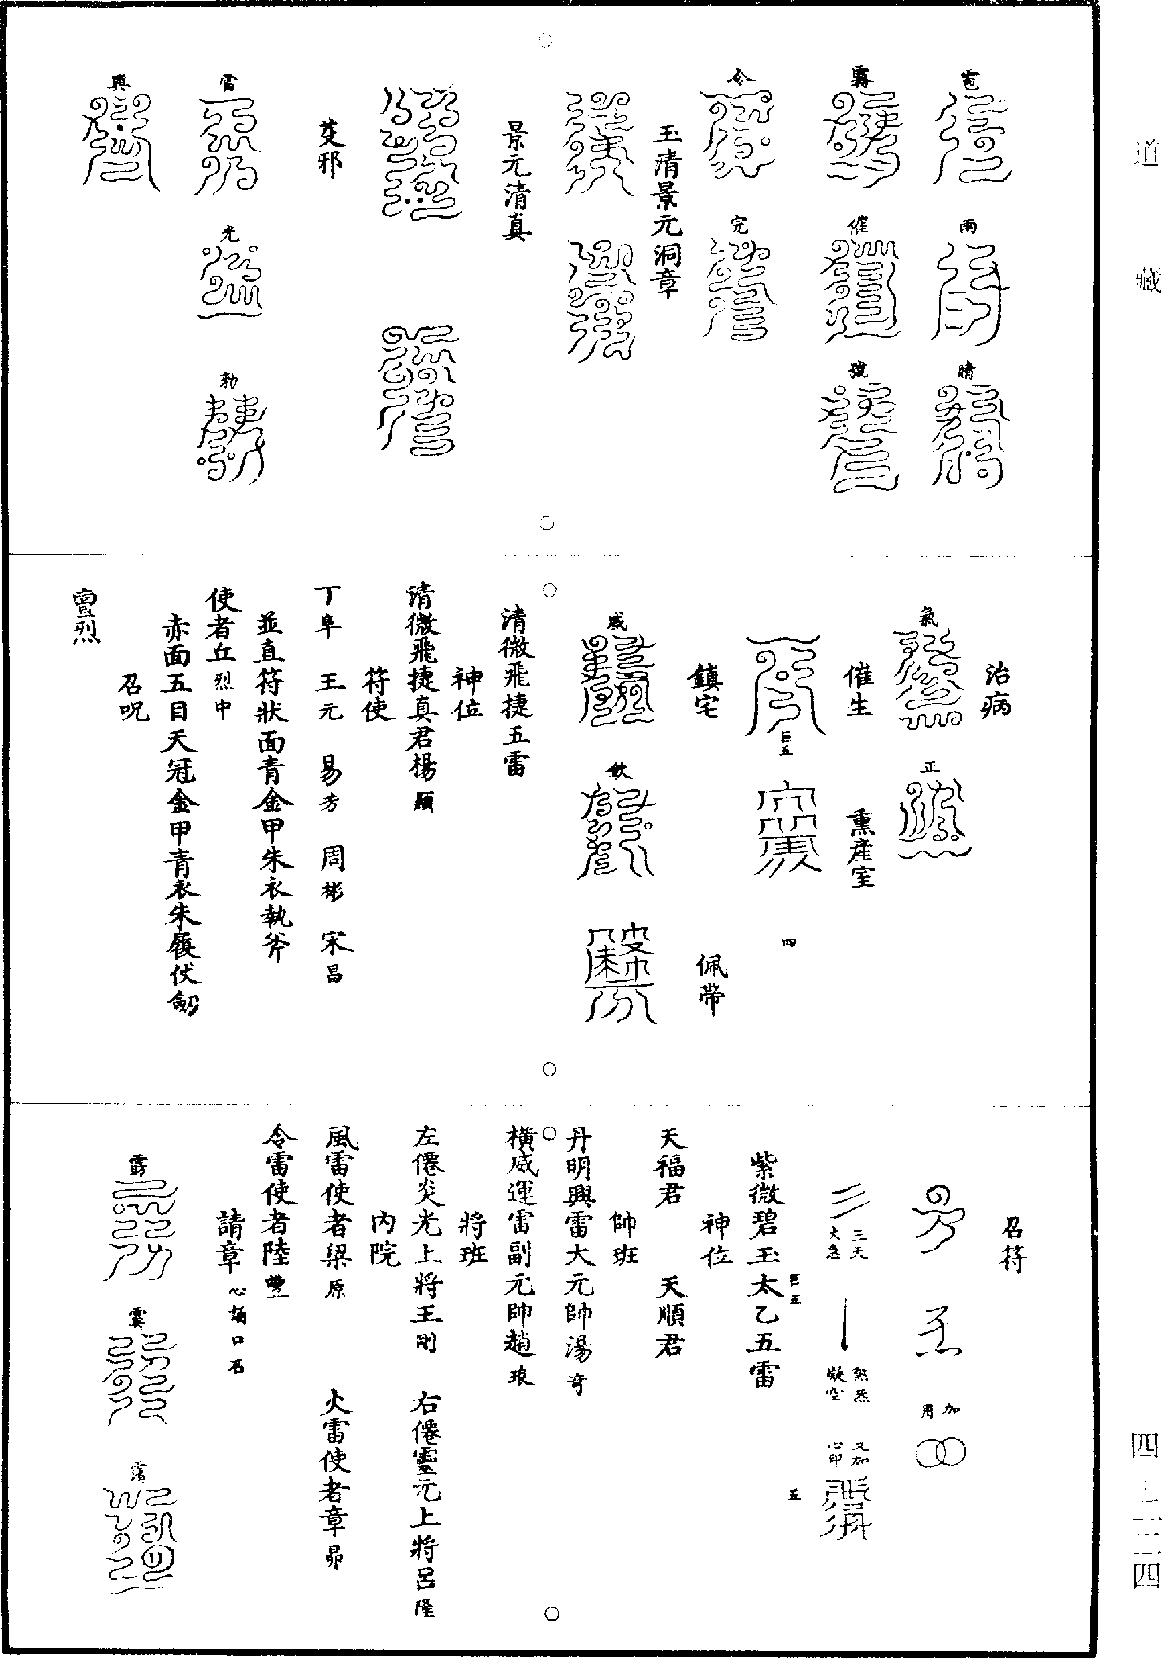 道藏
雨
晴
霧
催
令
完
玉清景元洞章
景元清真
芟邪
雷
光
勑
興
治病
氣
正
催生
熏產室
巨五
四
鎮宅
佩帶
威
欽
清微飛捷五雷
神位
清微飛捷真君楊顯
符使
丁阜 王元 易芳 周彬 宋昌
並直符狀面青金甲朱衣執斧
使者丘烈中
赤面五目天冠金甲青衣朱履伏劒
召呪
靈烈
召符
加用
三天火急
又加心印
紫微碧玉太乙五雷
巨五
五
神位
天福君 天順君
帥班
丹明興雷大元帥湯奇
橫威運雷副元帥趙琅
將班
左僊炎光上將王剛 右僊靈元上將呂隆
內院
風雷使者梁原 火雷使者章昴
令雷使者陸豐
請章心誦口召
四—七二四